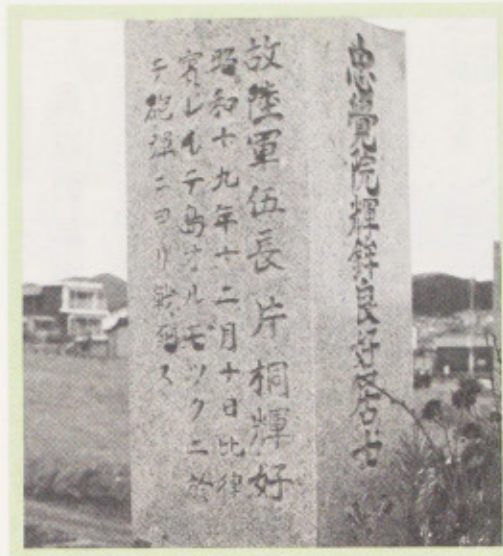 忠覺院輝鉾良好居士
故陸軍伍長片桐輝好
昭和十九年十二月十日比律
賓レイテ島オルモックニ於
テ砲弾ニヨリ戦死ス